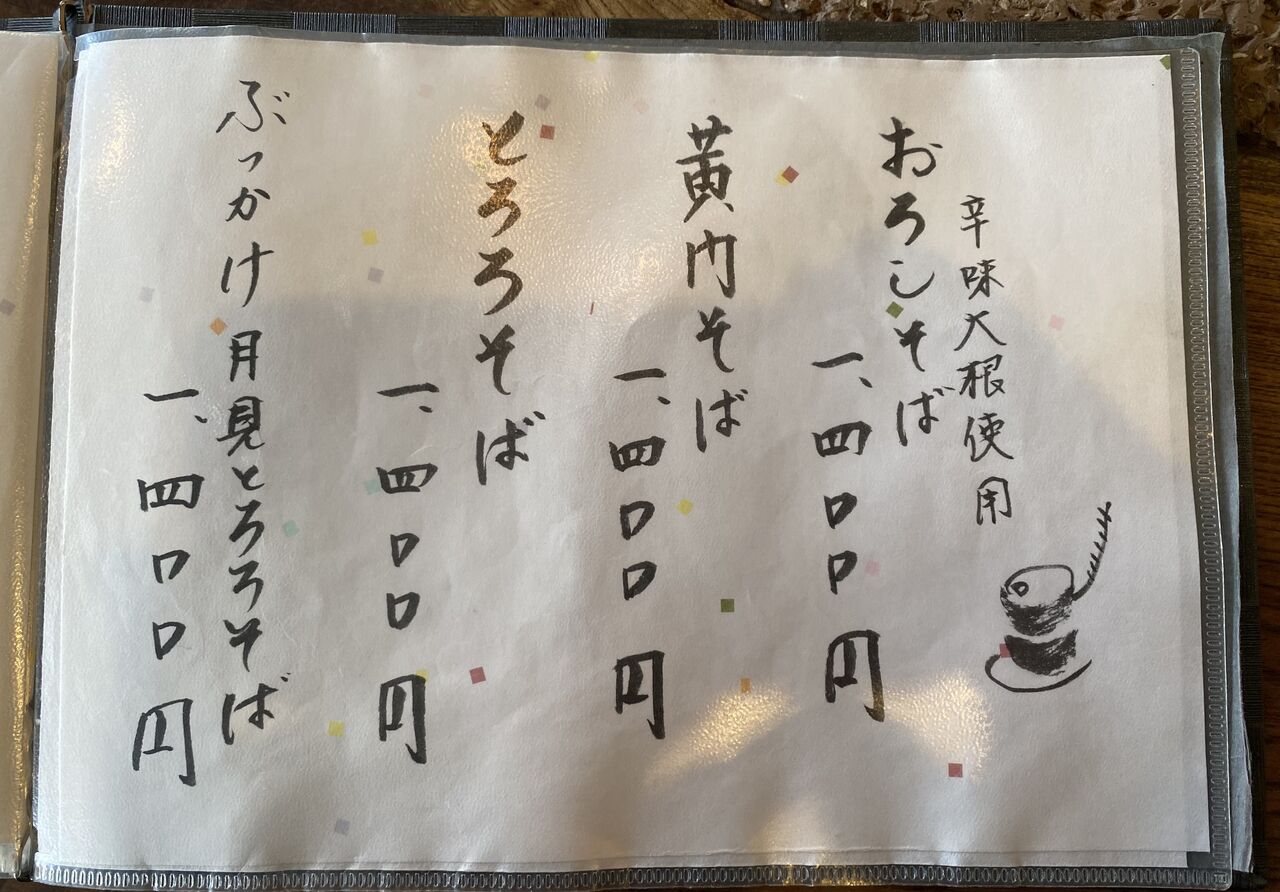 辛味大根使用
おろしそば
一、四〇〇円
黄門そば
一、四〇〇円
とろろそば
一、四〇〇円
ぶっかけ月見とろろそば
一、四〇〇円